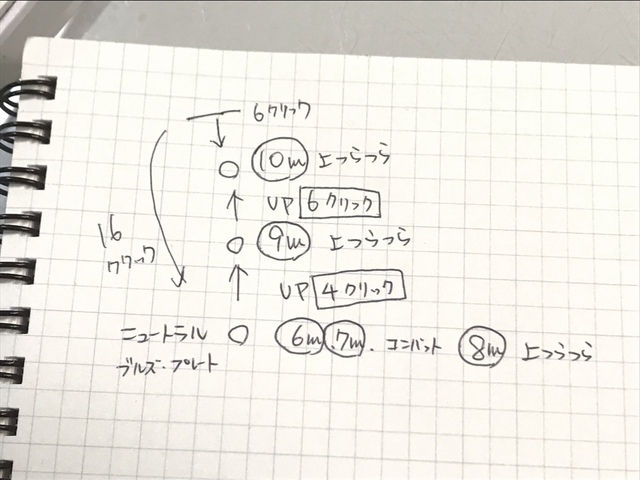 6クリック
10m よつらつら
UP 6クリック
9m よつらつら
16
クリック
UP 4クリック
ニュートラル 6m 7m. コンバット 8m よつらつら
ブルズ・プレート